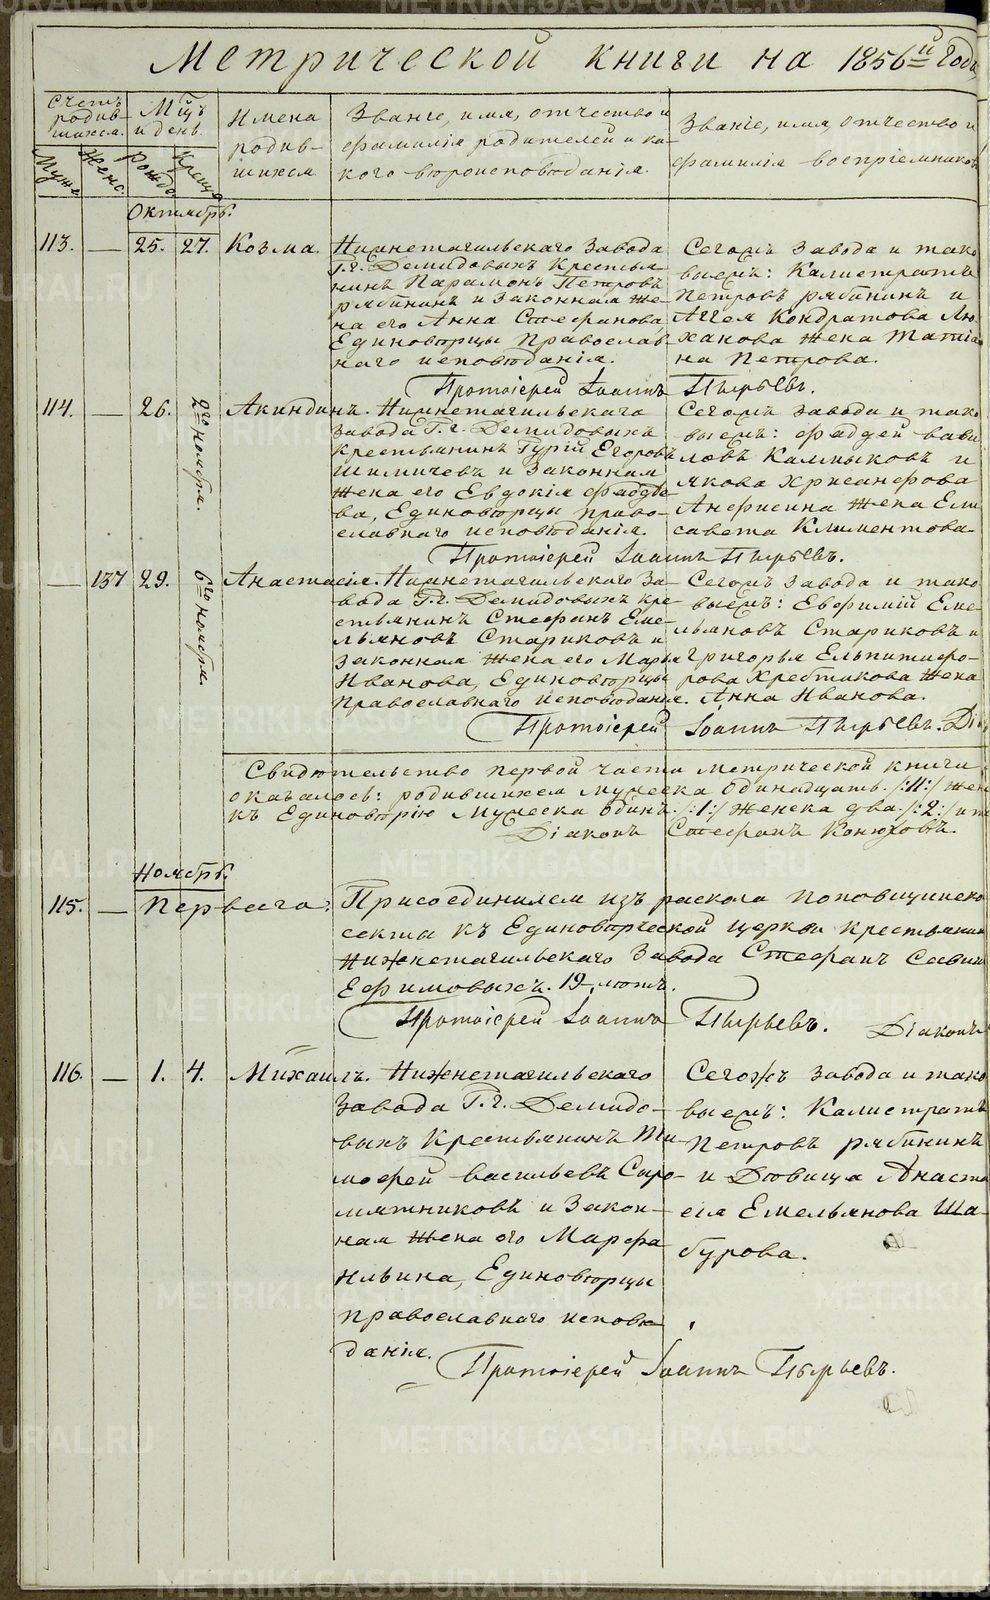 Метрической книги на 1856й Годъ
Счетъ родив-шихся.
Мцъ и день.
Имена родив-шихся
Званіе, имя, отчество и фамилія родителей и ка-кого вѣроисповѣданія.
Званіе, имя, отчество и фамилія воспріемниковъ
Муже
Женс.
Рожде
Креще
Октябрь.
113. — 25. 27. Козма.
Нижнетагильскаго завода
Г.г. Демидовыхъ Крестья-
нинъ Парамонъ Петровъ
рябининъ и Законная же-
на его Анна Стефанова,
Единовѣрцы Православ-
наго исповѣданія.
Сегожъ завода и тако
выежъ: Калистратъ
Петровъ рябининъ и
Аггея Кондратова Ля-
ханова жена Татія-
на Петрова.
Протоіерей Іоаннъ Пырьевъ.
114. — 26. 2го ноября. Акиндинъ.
Нижнетагильскаго
завода Г.г. Демидовыхъ
крестьянинъ Гурій Егоровъ
Шимичевъ и Законная
жена его Евдокія Фадѣе-
ва, Единовѣрцы право-
славнаго исповѣданія.
Сегожъ завода и тако
выежъ: Фаддей вави
ловъ Калмыковъ и
якова Хрисанфова
Анфисина жена Ели
савета Климентова.
Протоіерей Іоаннъ Пырьевъ.
— 137 29. 6го ноября. Анастасія.
Нижнетагильскаго за-
вода Г.г. Демидовыхъ кре-
стьянинъ Стефанъ Еме-
льяновъ Стариковъ и
законная жена его Марья
Иванова, Единовѣрцы
православнаго исповѣданія.
Сегожъ завода и тако
выежъ: Евфимій Еме-
льяновъ Стариковъ и
григорья Ельпитифо-
рова Хребтикова жена
Анна Иванова.
Протоіерей Іоаннъ Пырьевъ. Ді
Свидѣтельство первой части метрической книги
оказалось: родившихся мужеска одинадцать /:11:/ жен
къ Единовѣрію мужеска одинъ /:1:/ женска два /:2:/ и т
Діаконъ Стефанъ Конюховъ.
Ноябрь.
115. — Перваго:
Присоединился изъ раскола поповщинско
секты къ Единовѣрческой церкви крестьянинъ
Нижнетагильскаго завода Стефанъ Савин
Ефимовыхъ. 19 лѣтъ.
Протоіерей Іоаннъ Пырьевъ. Діаконъ
116. — 1. 4. Михаилъ.
Нижнетагильскаго
завода Г.г. Демидо-
выхъ Крестьянинъ Ти-
мофей васильевъ Сыро-
мятниковъ и Закон-
ная жена его Марфа
Ильина, Единовѣрцы
православнаго исповѣ
данія.
Сегожъ завода и тако
выежъ: Калистратъ
Петровъ рябининъ
и Дѣвица Анаста
сія Емельянова Ша-
бурова.
Протоіерей Іоаннъ Пырьевъ.
METRIKI.GASO-URAL.RU